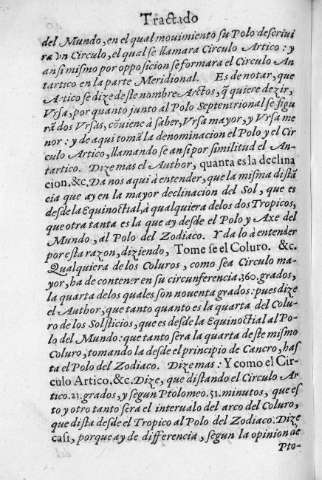 Tractado
del Mundo, en el qual movimiento su Polo descrivi
ra vn Circulo, el qual se llamara Circulo Artico: y
ansi mismo por opposicion se formara el Circulo An
tartico en la parte Meridional. Es de notar, que
Artico se dize deste nombre Arctos, q̃ quiere dezir,
Vrsa, por quanto junto al Polo Septentrional se figu
rã dos Vrsas, cõuiene à saber, Vrsa mayor, y Vrsa me
nor: y de aqui tomã la denominacion el Polo y el Cir
culo Artico, llamando se ansi por similitud el An-
tartico. Dize mas el Author, quanta es la declina
cion. &c. Da nos aqui à entender, que la misma distã
cia que ay en la mayor declinacion del Sol, que es
desde la Equinoctial, à qualquiera delos dos Tropicos,
que otra tanta es la que ay desde el Polo y Axe del
Mundo, al Polo del Zodiaco. Y da lo à entender
por esta razon, diziendo, Tome se el Coluro. &c.
Qualquiera de los Coluros, como sea Circulo ma-
yor, ha de contener en su circunferencia. 360. grados,
la quarta delos quales son nouenta grados: pues dize
el Author, que tanto quanto es la quarta del Colu-
ro de los Solsticios, que es desde la Equinoctial al Po-
lo del Mundo: que tanto sera la quarta deste mismo
Coluro, tomando la desde el principio de Cancro, has
ta el Polo del Zodiaco. Dize mas: Y como el Cir-
culo Artico, &c. Dize, que distando el Circulo Ar-
tico. 23. grados, y segun Ptolomeo. 51. minutos, que es
to y otro tanto sera el interualo del arco del Coluro,
que dista desde el Tropico al Polo del Zodiaco. Dize
casi, porque ay de differencia, segun la opinion de
Pto-